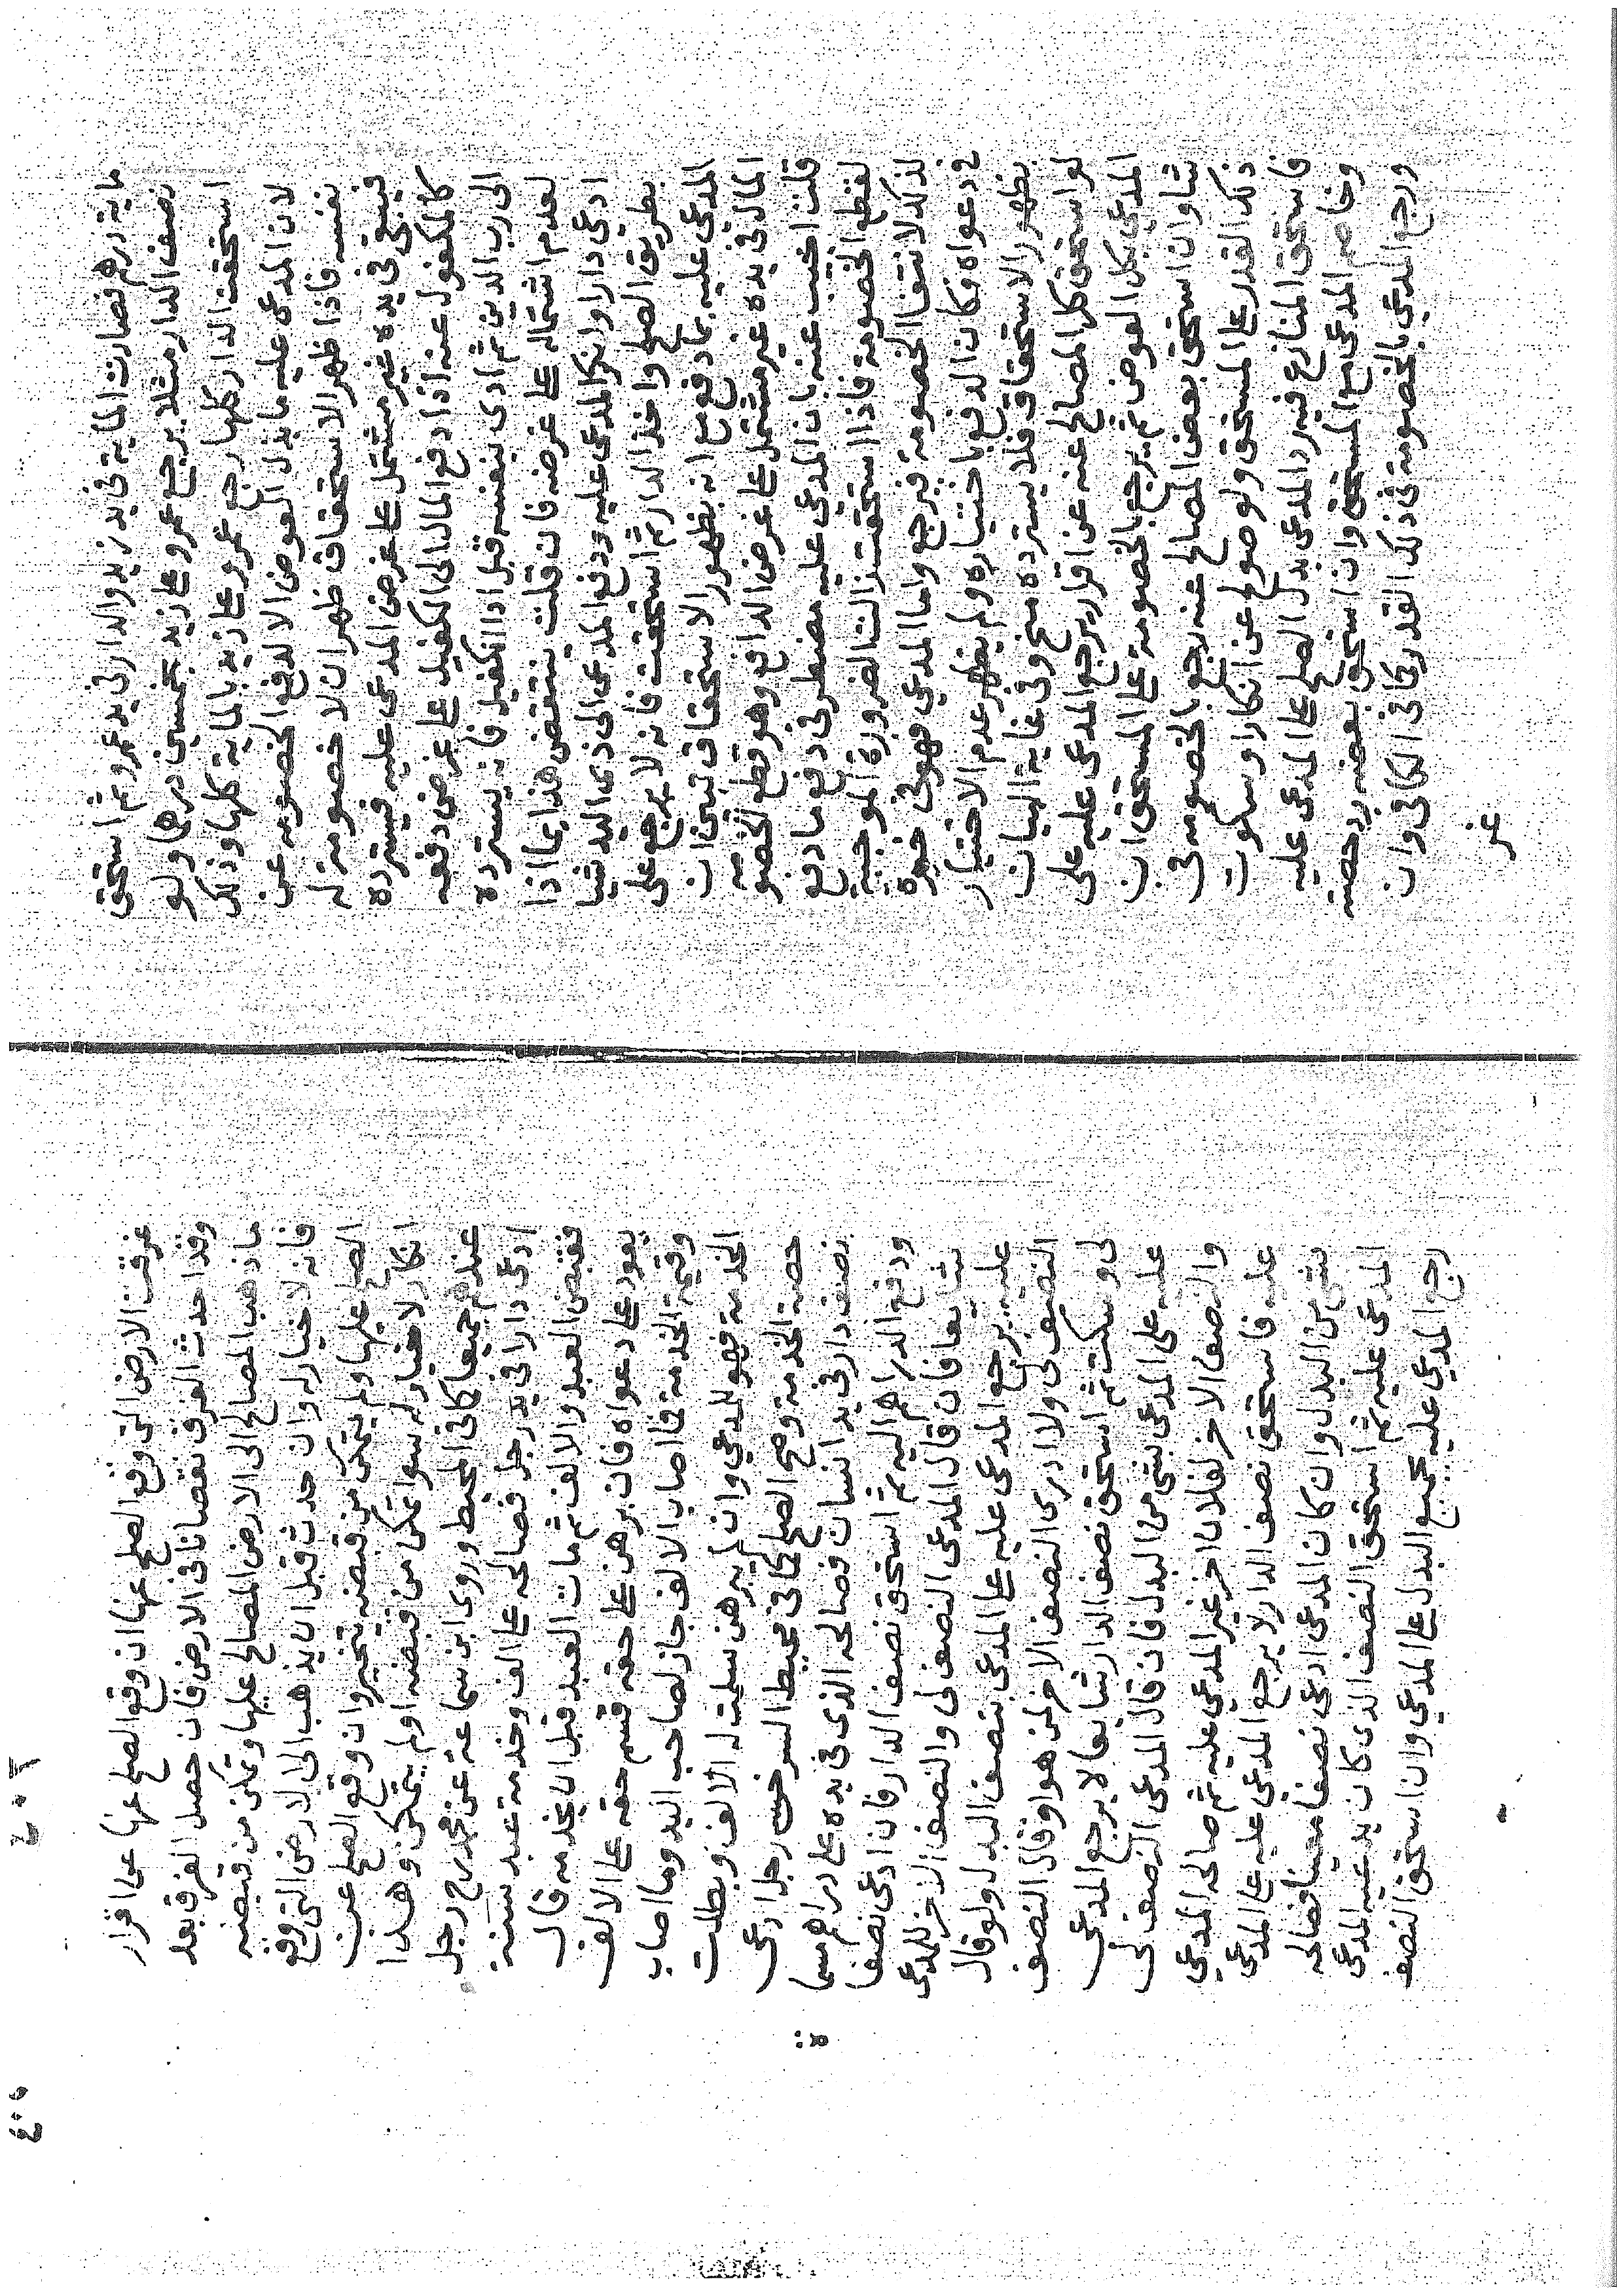 ماية درهم فصارت الماية في يد زيد والدار في يد عمرو ثم استحق
نصف الدار مثلا يرجع عمرو على زيد بخمسين درهما ولو
استحقت الدار كلها رجع عمرو على زيد بالماية كلها وذلك
لان المدعى عليه ما بذل العوض الا لدفع الخصومه عن
نفسه فاذا ظهر الاستحقاق ظهر ان لا خصومة له
فيبقى في يده غير مشتمل على غرض المدعى عليه فيسترده
كالمكفول عنه اذا دفع المال الى الكفيل على غرض دفعه
الى رب الدين ثم ادى بنفسه قبل ادا الكفيل فانه يسترده
لعدم اشتماله على غرضه فان قلت ينتقض هذا بما اذا
ادعى دارا وانكر المدعى عليه ودفع المدعى الى ذى اليد شيا
بطريق الصلح واخذ الدار ثم استحقت فانه لا يرجع على
المدعى عليه بما دفع مع انه بظهور الاستحقاق تبين ان
المال في يده غير مشتمل على غرض الدافع وهو قطع الخصومه
قلت اجيب عنه بان المدعى عليه مضطر في دفع ما دفع
لقطع الخصومة فاذا استحقت زالت الضرورة الموجبة
لذلك لانتفا الخصومة فيرجع واما المدعي فهو في خيرة
في دعواه فكان الدفع باختياره ولم يظهر عدم الاختيار
بظهور الاستحقاق فلا يسترده منح وفي غاية البيان
لو استحق كل المصالح عنه عن اقرار يرجع المدعى عليه على
المدعي بكل العوض ثم يرجع بالخصومة على المستحق ان
شا وان استحق بعض المصالح عنه رجع بالخصومه في
ذلك القدر على المستحق ولو صولح عن انكار او سكوت
فاستحق المنازع فيه رد المدعى بدل الصلح على المدعى عليه
وخاصم المدعى مع المستحق وان استحق بعضه رد حصته
ورجع المدعي بالخصومة في ذلك القدر كما في الكافي وان
غر
غرقت الارض التي وقع الصلح عنها ان وقع الصلح عنها عن اقرار
وقد احدث الغرق نقصانا في الارض فان حصل الغرق بعد
ما ذهب المصالح الى الارض المصالح عليها وتمكن من قبضه
فانه لا خيار له وان حدث قبل ان يذهب الى الارض التي وقع
الصلح عليها ولم يتمكن من قبضه يتخير وان وقع الصلح عن
انكار لا خيار له سوا تمكن من قبضه او لم يتمكن وهذا
عندهم جميعا كما في المحيط وروى ابن سماعة عن محمد رح رجل
ادعى دارا في يد رجل فصالحه على الف وخدمة عبد سنة
فقبض العبد والالف ثم مات العبد قبل ان يخدمه قال
يعود على دعواه فان برهن على حقه قسم حقه على الالف
وقيمة الخدمة فما اصاب الالف جاز لصاحب اليد وما اصاب
الخدمة فهو للمدعي وان لم يبرهن سلمت له الالف وبطلت
حصة الخدمة وصح الصلح كما في محيط السرخسي رجل ادعى
نصف دار في يد انسان فصالحه الذي في يده على دراهم مسماة
ودفع الدراهم اليه ثم استحق نصف الدار فان ادعى نصفا
شايعا فان قال المدعى النصف لي والنصف الاخر للمدعى
عليه يرجع المدعى عليه على المدعى بنصف البدل ولو قال
النصف لي ولا ادرى النصف الاخر لمن هو او قال النصف
لي وسكت ثم استحق نصف الدار شايعا لا يرجع المدعى
عليه على المدعى بشى من البدل فان قال المدعى النصف لي
والنصف الاخر لفلان اخر غير المدعي عليه ثم صالحه المدعي
عليه فاستحق نصف الدار لا يرجع المدعى عليه على المدعي
بشى من البدل وان كان المدعى ادعى نصفا معينا فصالحه
المدعى عليه ثم استحق النصف الذى كان يدعيه المدعى
رجع المدعي عليه بجميع البدل على المدعي وان استحق النصف